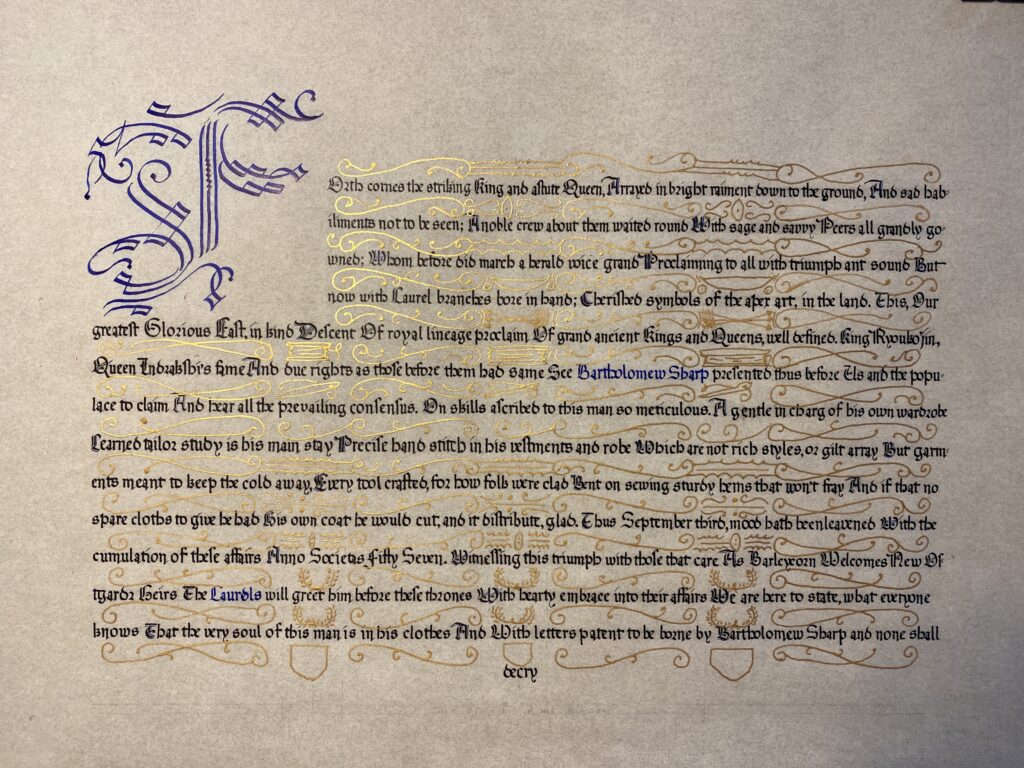 Forth comes the striking King and astute Queen, Arrayed in bright raiment down to the ground, And sad hab-
iliments not to be seen; A noble crew about them waited round With sage and savvy Peers all grandly go-
wned; Whom before did march a herald voice grand Proclaiming to all with triumph ant sound But
now with Laurel branches bore in hand; Cherished symbols of the apex art, in the land. This, Our
greatest Glorious East, in kind Descent Of royal lineage proclaim Of grand ancient Kings and Queens, well defined. King Ryouko'jin,
Queen Indrakshi's fame And due rights as those before them had same See Bartholomew Sharp presented thus before Us and the popu-
lace to claim And hear all the prevailing consensus. On skills ascribed to this man so meticulous. A gentle in charg of his own wardrobe
Learned tailor study is his main stay Precise hand stitch in his vestments and robe Which are not rich styles, or gilt array But garm-
ents meant to keep the cold away, Every tool crafted, for how folk were clad Bent on sewing sturdy hems that won't fray And if that no
spare cloths to give he had His own coat he would cut, and it distribute, glad. Thus September third, mood hath been leavened With the
cumulation of these affairs Anno Societas Fifty Seven. Witnessing this triumph with those that care As Barleycorn Welcomes New Of
tgardr Heirs The Laurels will greet him before these thrones With hearty embrace into their affairs We are here to state, what everyone
knows That the very soul of this man is in his clothes And With letters patent to be borne by Bartholomew Sharp and none shall
decry